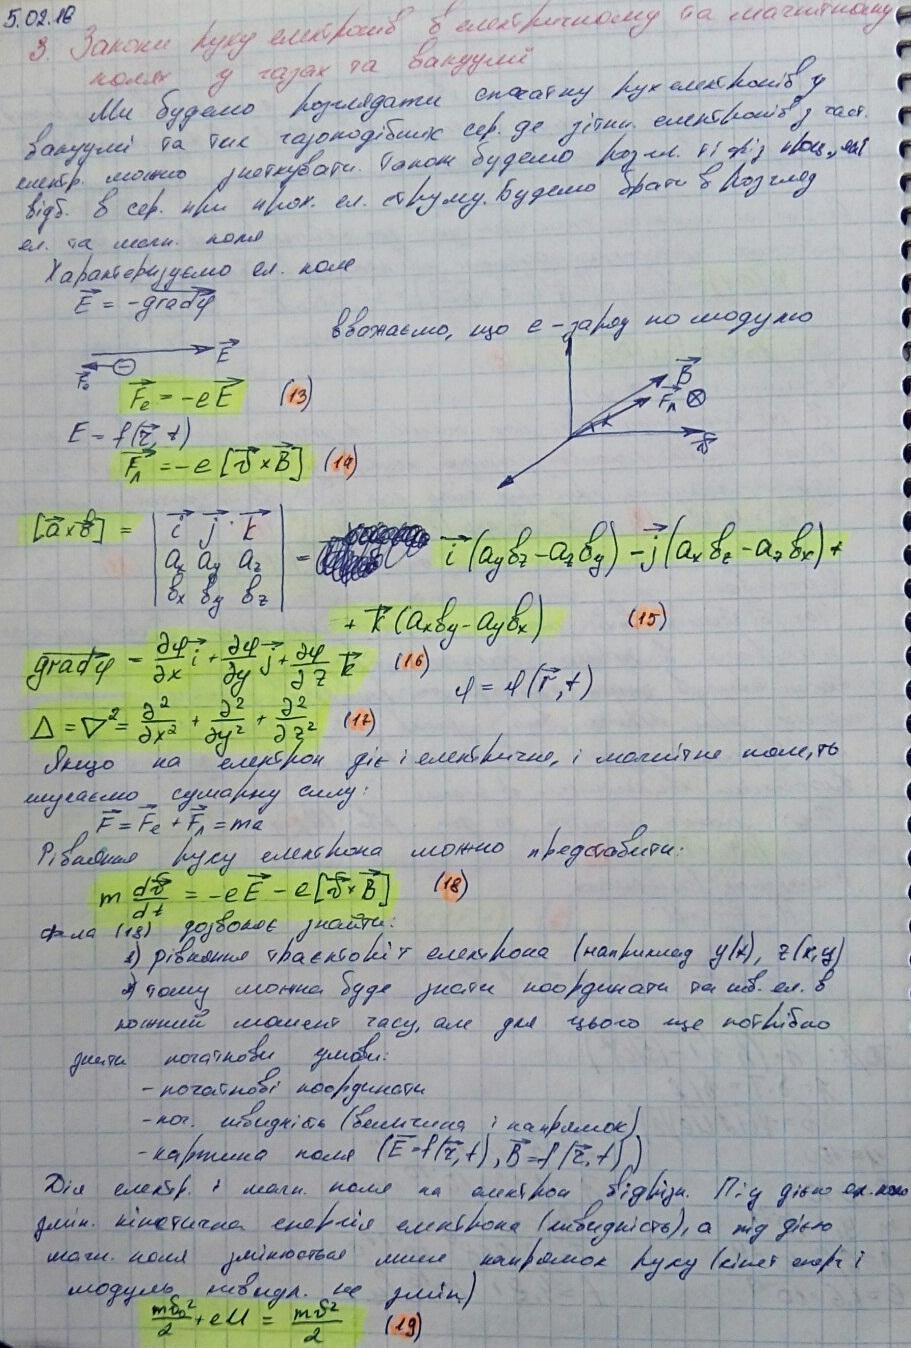 5.02.16
3. Закони руху електронів в електричному та магнітному
полях у газах та вакуумі
Ми будемо розглядати спочатку рух електронів у
вакуумі та тих газоподібних сер. де зіткн. електронів з част.
електр. можно знехтувати. Також будемо розгл. ті фіз проц., які
відб. в сер. при прох. ел. струму. Будемо брати в розгляд
ел. та магн. поля
Характеризуємо ел. поле
E = -grad φ
вважаємо, що e - заряд по модулю
E
Fe
B
Fл ⊗
α
v
Fe = -eE (13)
E = f(r, t)
Fл = -e [v×B] (14)
[a×b] = | i j k | = i (aybz - azby) - j (axbz - azbx) +
ax ay az
bx by bz
+ k (axby - aybx) (15)
grad φ = ∂φ/∂x i + ∂φ/∂y j + ∂φ/∂z k (16)
φ = φ(r, t)
Δ = ∇² = ∂²/∂x² + ∂²/∂y² + ∂²/∂z² (17)
Якщо на електрон діє і електричне, і магнітне поле, то
шукаємо сумарну силу:
F = Fe + Fл = ma
Рівняння руху електрона можно представити:
m dv/dt = -eE - e[v×B] (18)
ф-ла (18) дозволяє знайти:
1) рівняння траєкторії електрона (наприклад y(x), z(x,y)
2) тому можна буде знати координати та шв. ел. в
кожний момент часу, але для цього ще потрібно
знати початкови умови:
- початкові координати
- поч. швидкість (величина і напрямок)
- картина поля (E=f(r,t), B=f(r,t))
Дія електр. і магн. поля на електрон відрізн. Під дією ел. поля
змін. кінетична енергія електрона (швидкість), а під дією
магн. поля змінюється лише напрямок руху (кінет енерг і
модуль швидк. не змін.)
mv₀²/2 + eU = mv²/2 (19)